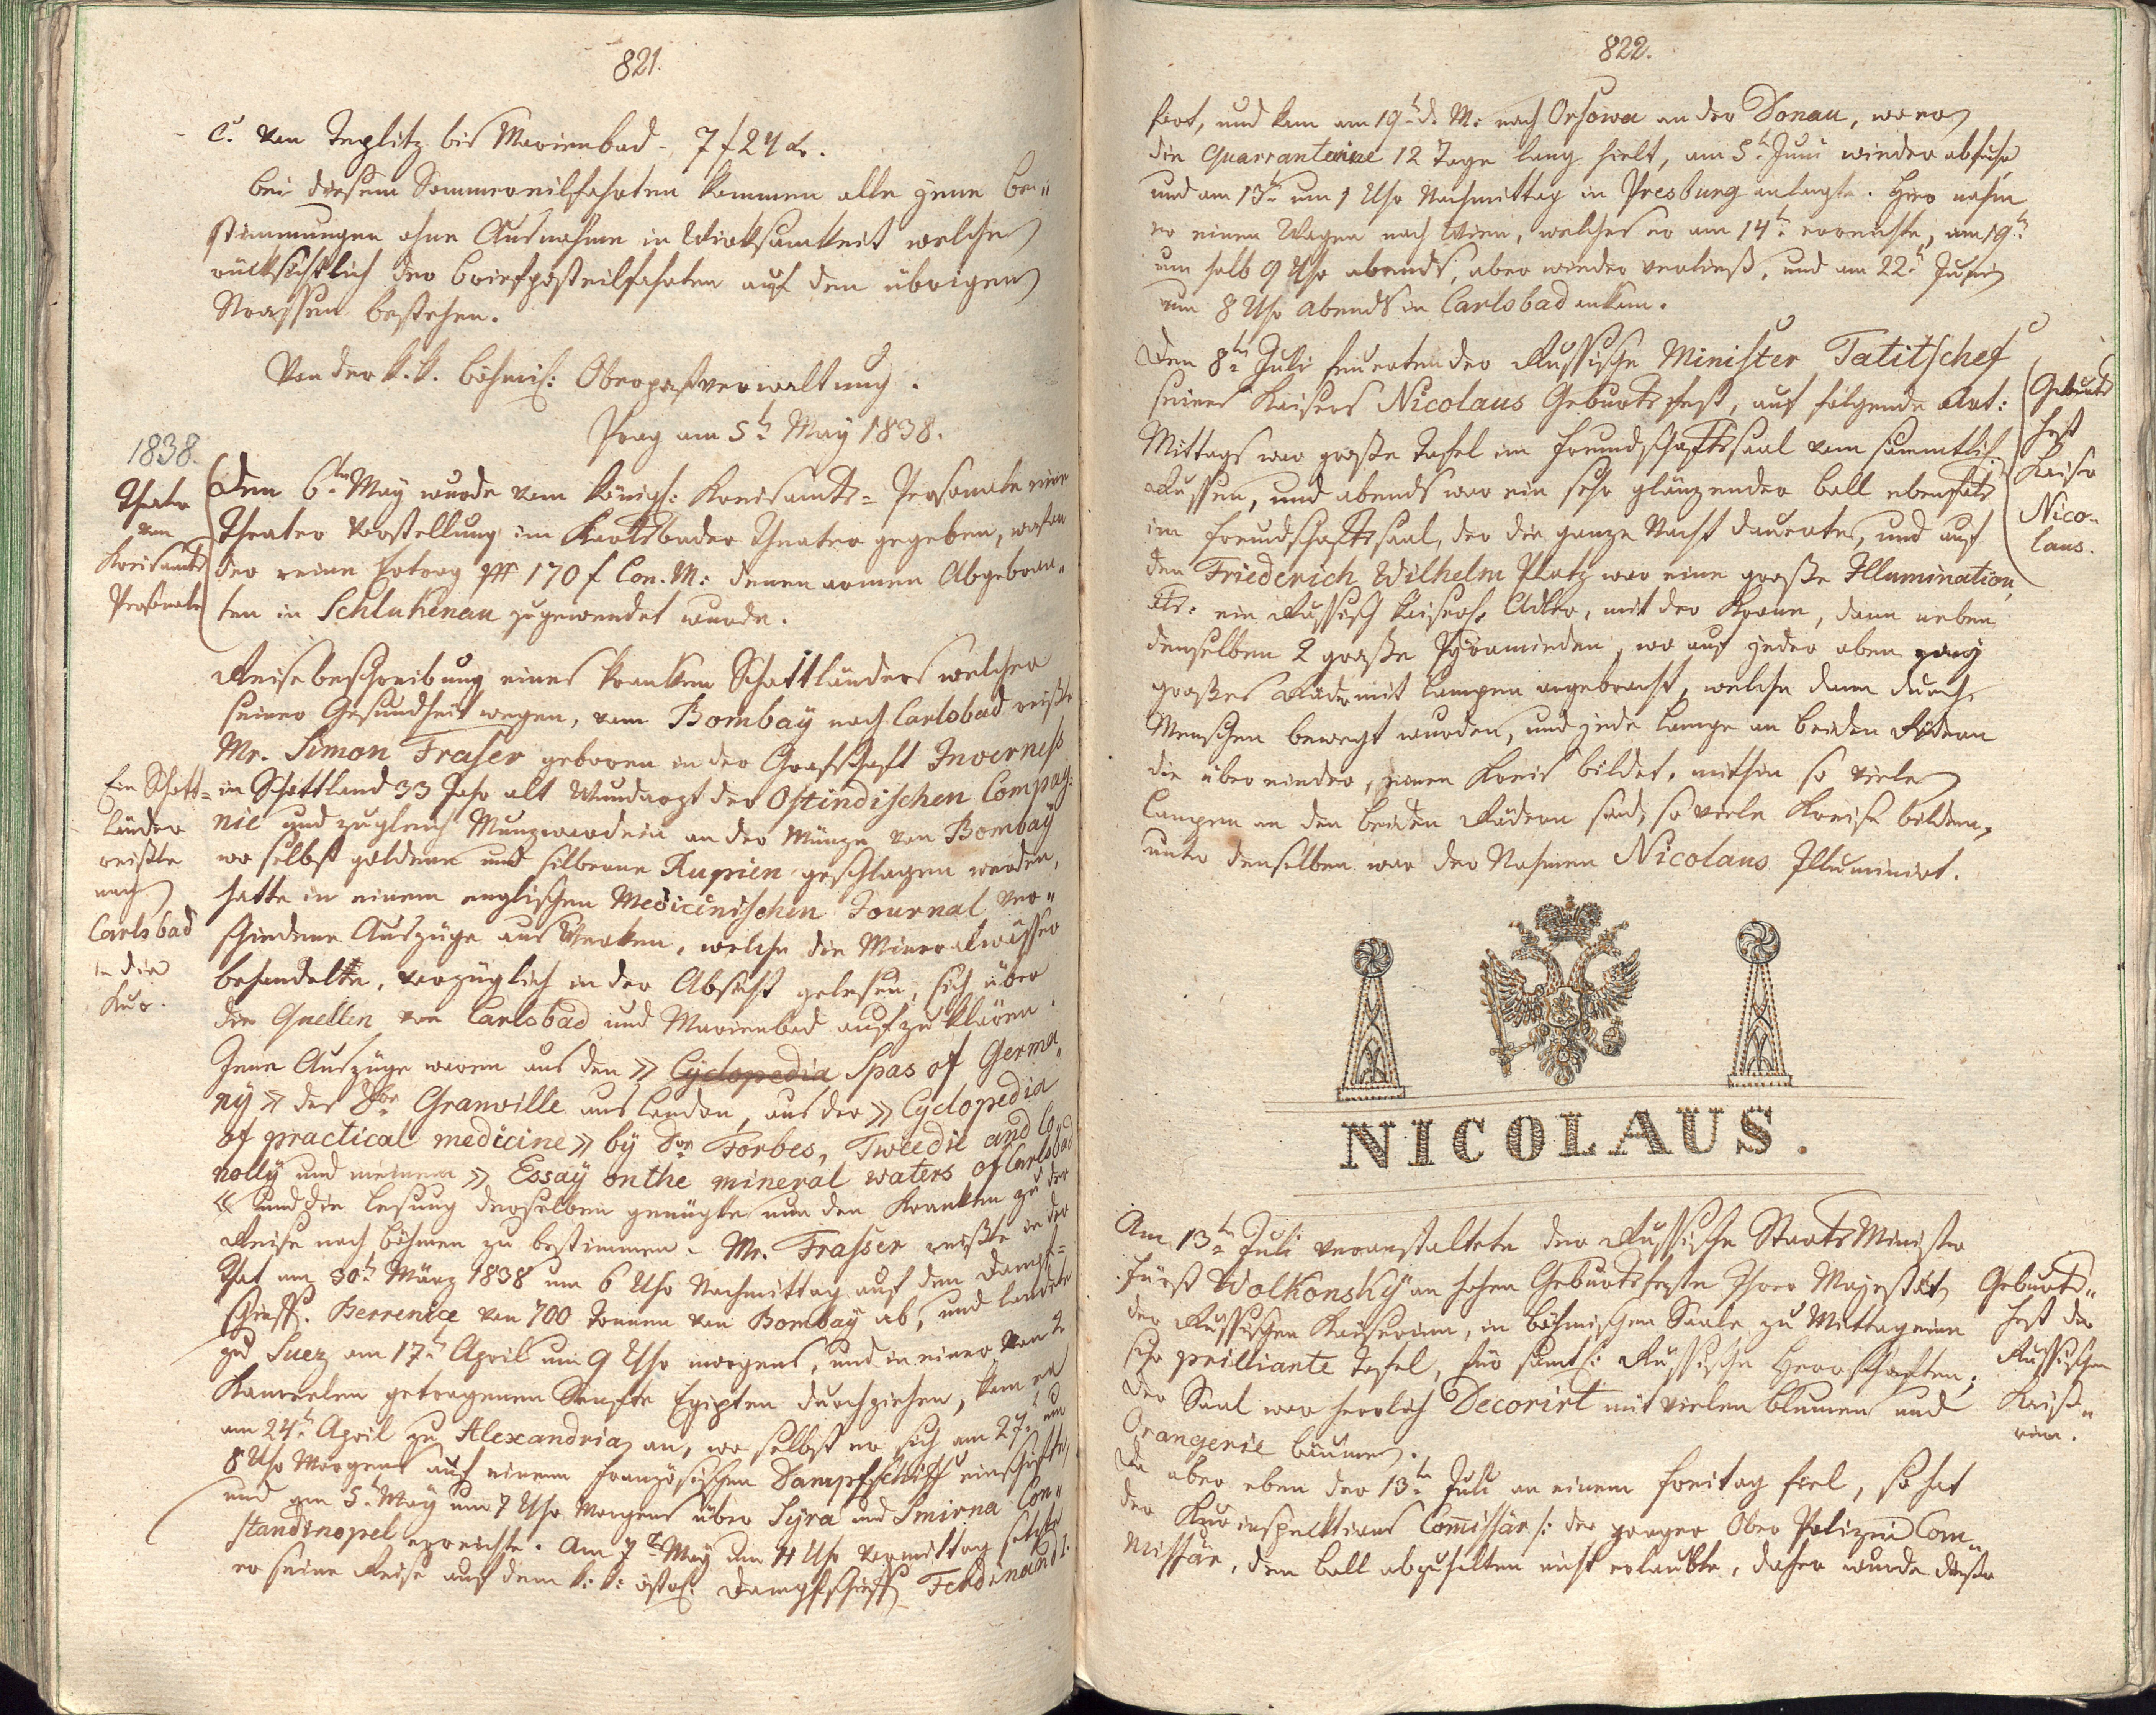 821.
C. von Teplitz bis Marienbad - 7 f 24 x.
bei diesem Sommereilfahrten kommen alle jene be"
stimmungen ohne Ausnahme in Wirksamkeit welche
rücksichtlich der briefposteilfahrten auf den übrigen
Strassen bestehen.
Von der k. k. böhmis: Oberpostverwaltung.
Prag am 5t May 1838.
1838.
Theater
von
Kreisamts
Personale
Den 6ten May wurde vom königl: Kreisamts= Personale eine
Theater Vorstellung im Karlsbader Theater gegeben, wofon
der reine Ertrag pr 170 f Con. M: denen armen Abgebran"
ten in Schlukenau zugewendet wurde.
Reisebeschreibung eines kranken Schottländers welcher
seiner Gesundheit wegen, vom Bombay nach Carlsbad reißte
Mr. Simon Fraser geboren in der Grafschaft Inverness
Ein Schott=
länder
reißte
nach
Carlsbad
in die
Kur.
in Schottland 33 Jahr alt Wundarzt der Ostindischen Compag:
nie und zugleich Münzwardein an der Münze von Bombay
wo selbst goldene und silberne Rupien geschlagen werden,
hatte in einem englischen Medicinischen Journal ver"
schiedene Auszüge aus Werken, welche die Mineralwässer
behandelte, vorzüglich in der Absicht gelesen, sich über
die Quellen von Carlsbad und Marienbad aufzuklären.
Jene Auszüge waren aus den » Cyclopedia Spas of Germa"
ny » des Dor Granville aus London, aus der » Cyclopedia
of practical medicine » by Dor Forbes, Tweedie and Co
nolly und meinem » Essay on the mineral waters of Carlsbad
« und die Lesung derselben genügte nun den Kranken zu der
Reise nach Böhmen zu bestimmen. Mr. Frasser reißte in der
That am 30t März 1838 um 6 Uhr Nachmittag auf dem Dampf=
schieff. Berrenice von 700 Tonnen von Bombay ab, und landete
zu Suez am 17t April um 9 Uhr morgens, und in einer von 2
Kameelen getragenen Senfte Egipten durchziehen, kam er
am 24t April zu Alexandria an, wo selbst er sich am 27t um
8 Uhr Morgens auf einem französischen Dampfschiff einschifte
und am 5t May um 7 Uhr Morgens über Syra und Smirna Con"
standinopel erreichte. Am 7t May um 4 Uhr Vormittag setzte
er seine Reise auf dem k: k: östr: Dampfschieff Ferdinand I.
822.
fort, und kam am 19t d. M: nach Orsowa an der Donau, wo er
die Quarrantaine 12 Tage lang hielt, am 5t Juni wieder abfuhr
und am 13t um 1 Uhr Nachmittag in Presburg anlangte. Hier nahm
er einen Wagen nach Wien, welches er am 14t erreichte, am 19t
um halb 9 Uhr abends, aber wieder verließ, und am 22t Juni
um 8 Uhr Abends in Carlsbad ankam.
Den 8ten Juli feuerten der Russische Minister Tatitschef
seines Kaisers Nicolaus Geburtsfest, auf folgende Art:
Geburts
fest
Kaiser
Nico-
laus.
Mittags war große Tafel im Freundschaftssaal vom sammtlich
Russen, und abends war ein sehr glänzender ball ebenfals
im Freundschaftssaal, der die ganze Nacht dauerte, und auf
den Friederich Wilhelm Platz war eine große Illumination,
als: ein Russisch kaiserl. Adler, mit der Krone, dann neben
denselben 2 große Pyramieden, wo auf jeder oben zwey
großes Räder mit Lampen angebracht, welche dann durch
Menschen bewegt wurden, und jede Lampe an beiden Rädern
die über einder, einen Kreis bildet, mithin so viele
Lampen an den beiden Rädern sind, so viele Kreise bilden,
unter denselben war der Nahmen Nicolaus Illuminirt.
NICOLAUS.
Am 13ten Juli veranstaltete der Russische Staats Minister
Fürst Wolkonsky an hohen Geburtsfeste Ihrer Majestät
der Russischen Kaiserinn, in böhmischen Saale zu Mittag eine
sehr prilliante Tafel, für samtl: Russische Herrschaften;
der Saal war herrlich Decorirt mit vielen blumen und
Orangerie bäumen.
Geburts"
fest der
Russischen
Kaise"
rin.
Da aber eben der 13te Juli an einem freitag fiel, so hat
der Kurinspecktions Commissär /: der prager Ober Polizei Com"
missär, den ball abzuhalten nicht erlaubte, daher wurde dieser